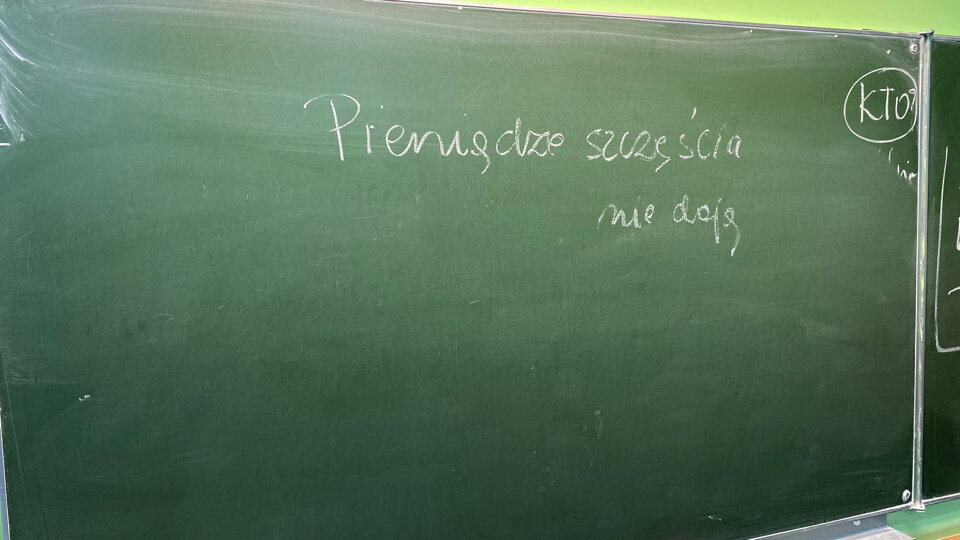 Pieniądze szczęścia
nie dają
KTO?